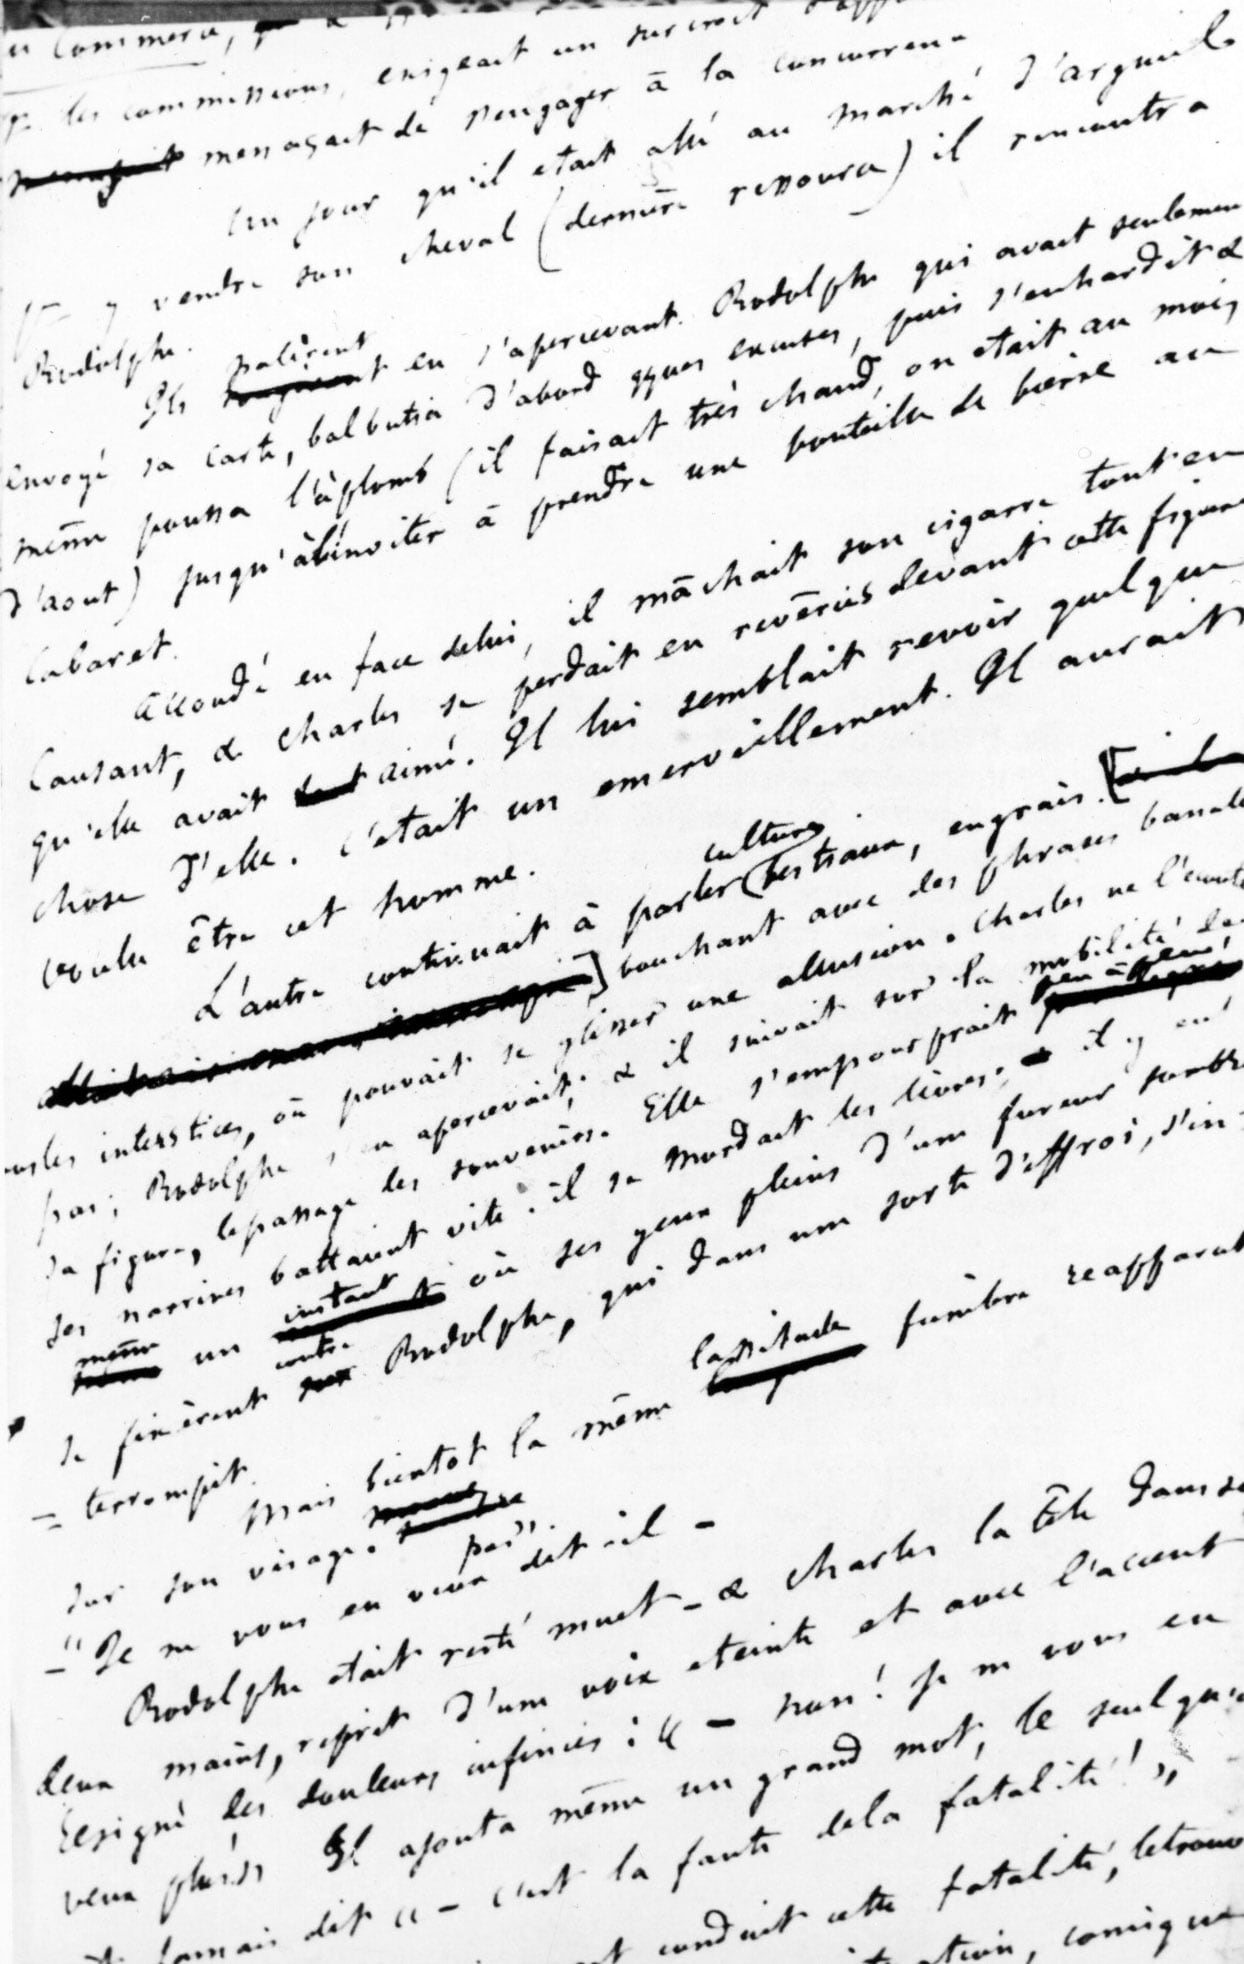 Commerce, &
les commissions, exigeait un surcroit d'app
menaçait de s'engager à la concurrence
Un jour qu'il etait allé au marché d'argueil
pr y vendre son cheval (dernière ressource) il rencontra
Rodolphe.
Ils palirent en s'apercevant. Rodolphe qui avait seulemen
envoyé sa carte, balbutia d'abord qques excuses, puis s'enhardit &
même poussa l'aplomb (il faisait très chaud, on etait au mois
d'aout) jusqu'à l'inviter à prendre une bouteille de bierre au
Cabaret.
Accoudé en face de lui, il mâchait son cigarre tout en
Causant, & Charles se perdait en revêries devant cette figure
qu'elle avait aimé. Il lui semblait revoir quelque
chose d'elle. C'etait un emerveillement. Il aurait
voulu être cet homme.
culture
L'autre continuait à parler bestiaux, engrais.
] bouchant avec des phrases banale
les interstices, où pouvait se glisser une allusion. Charles ne l'ecouta
pas; Rodolphe s'en apercevait, & il suivait sur la mobilité de
peu à peu
sa figure, le passage des souvenirs. Elle s'empourprait
ses narrines battaient vite. il se mordait les lèvres; il y eut
même un instant où ses yeux pleins d'une fureur sombre
se fixèrent contre Rodolphe, qui dans une sorte d'effroi, s'in-
= terrompit.
Mais bientot la même lassitude funèbre reapparut
sur son visage.
- "Je ne vous en veux pas" dit-il -
Rodolphe etait resté muet - & Charles la tête dans se
deux mains, reprit d'une voix eteinte et avec l'accent
resigné des douleurs infinies : « - non! je ne vous en
veux plus» Il ajouta même un grand mot, le seul qu'il
jamais dit « - c'est la faute de la fatalité! »,
conduit cette fatalité, le trouva
comique